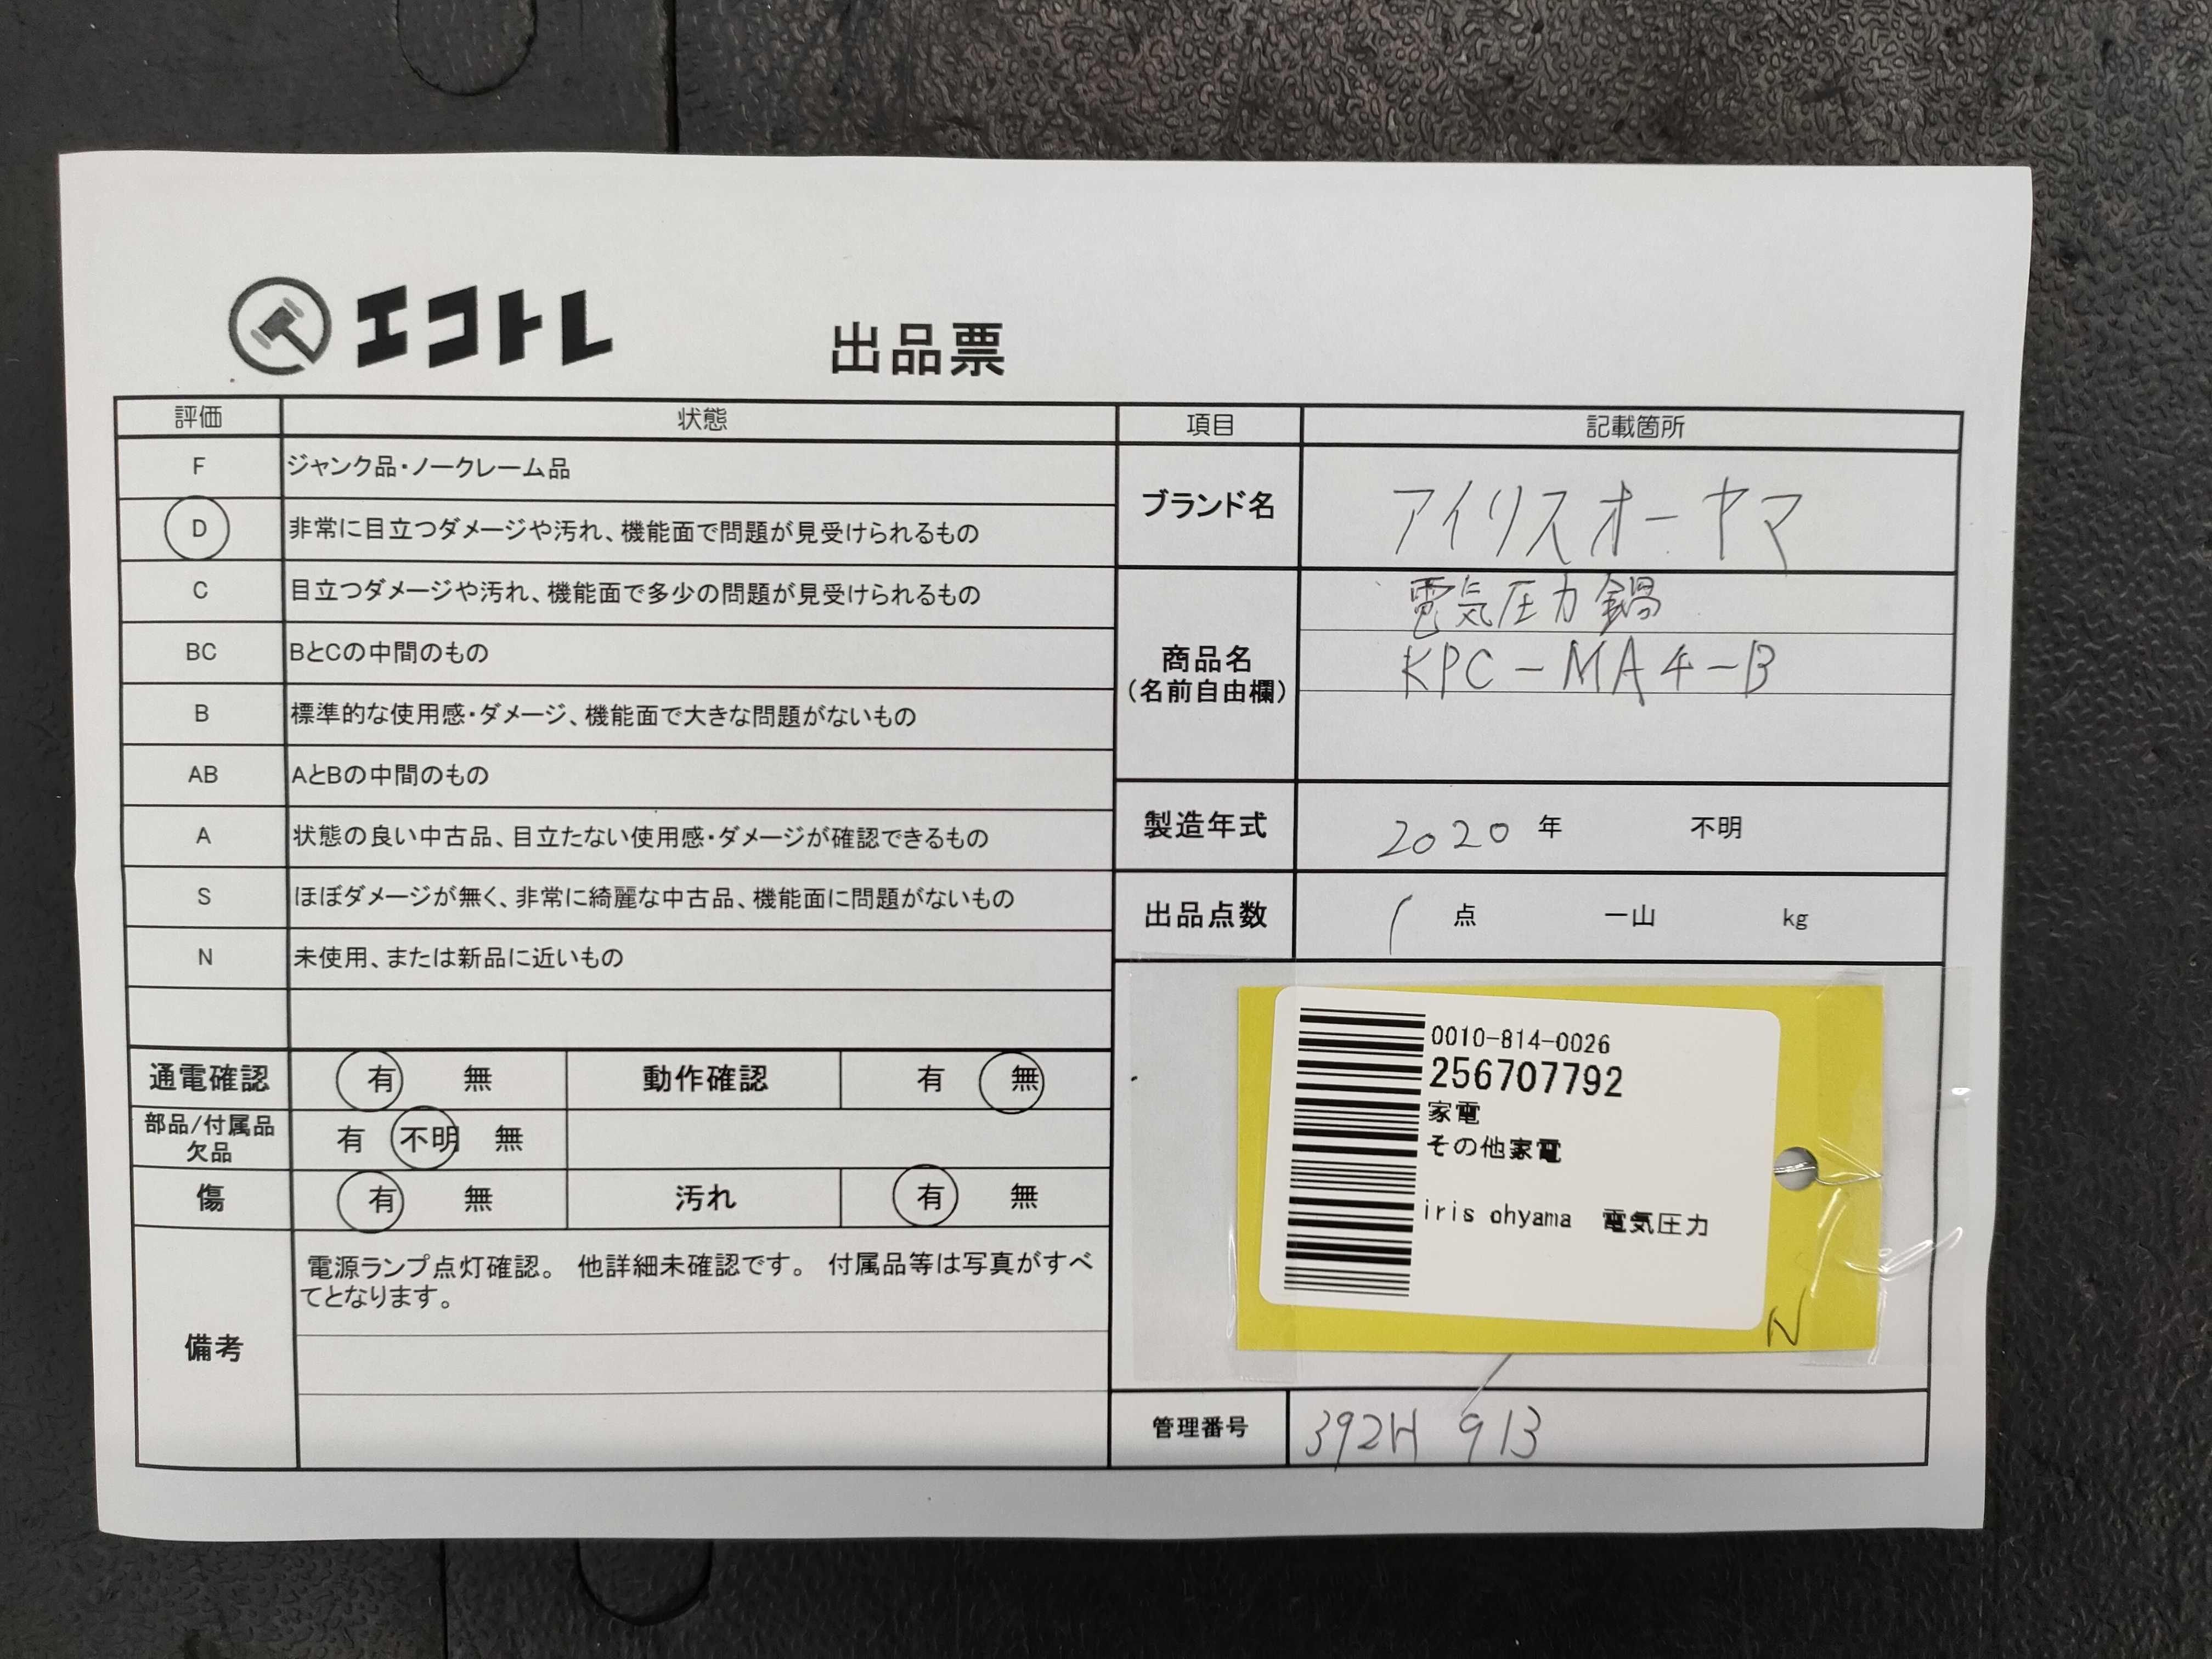 エコトレ
出品票
評価 状態
F ジャンク品・ノークレーム品
D 非常に目立つダメージや汚れ、機能面で問題が見受けられるもの
C 目立つダメージや汚れ、機能面で多少の問題が見受けられるもの
BC BとCの中間のもの
B 標準的な使用感・ダメージ、機能面で大きな問題がないもの
AB AとBの中間のもの
A 状態の良い中古品、目立たない使用感・ダメージが確認できるもの
S ほぼダメージが無く、非常に綺麗な中古品、機能面に問題がないもの
N 未使用、または新品に近いもの
通電確認 有 無 動作確認 有 無
部品/付属品
欠品
有 不明 無
傷 有 無 汚れ 有 無
備考
電源ランプ点灯確認。 他詳細未確認です。 付属品等は写真がすべ
てとなります。
項目 記載箇所
ブランド名 アイリスオーヤマ
商品名
(名前自由欄)
電気圧力鍋
KPC-MA4-B
製造年式 2020 年 不明
出品点数 1 点 一山 kg
0010-814-0026
256707792
家電
その他家電
iris ohyama 電気圧力
N
管理番号 392H 913